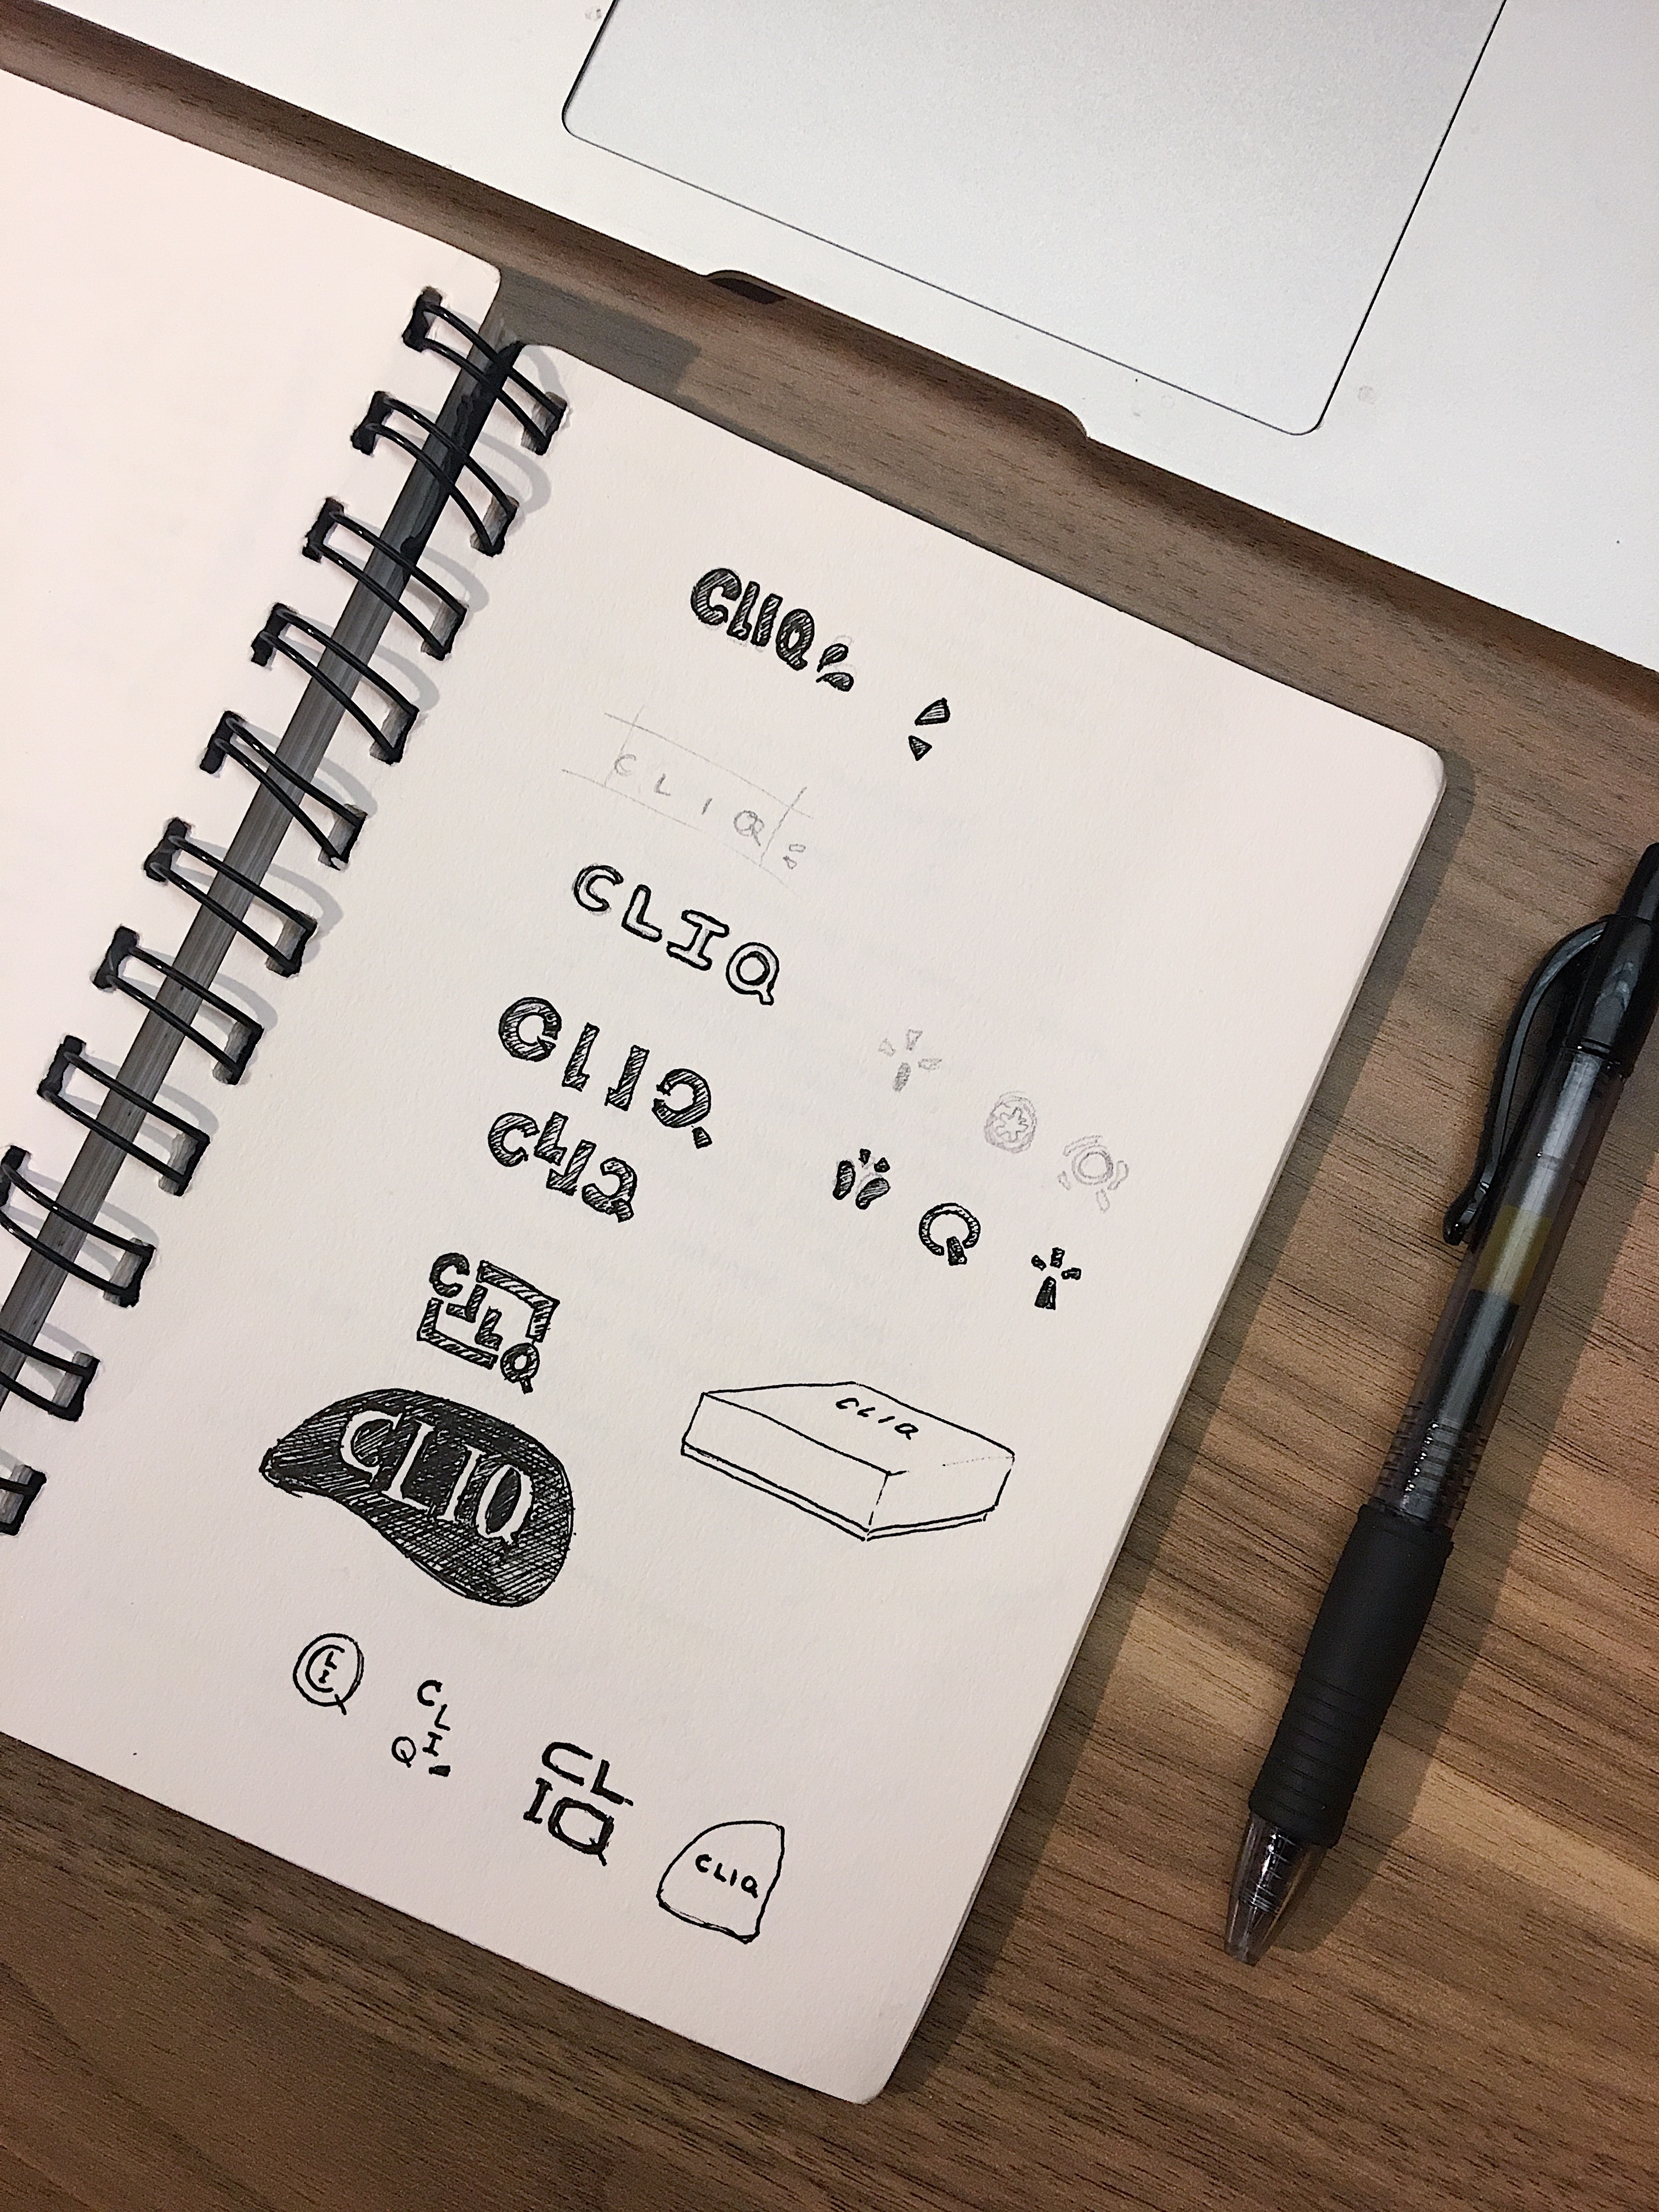 CLIQ
CLIQ
CLIQ
CLIQ
CLIQ
Q
CLIQ
CLIQ
CLIQ
CLIQ
C
L
I
Q
CL
IQ
CLIQ